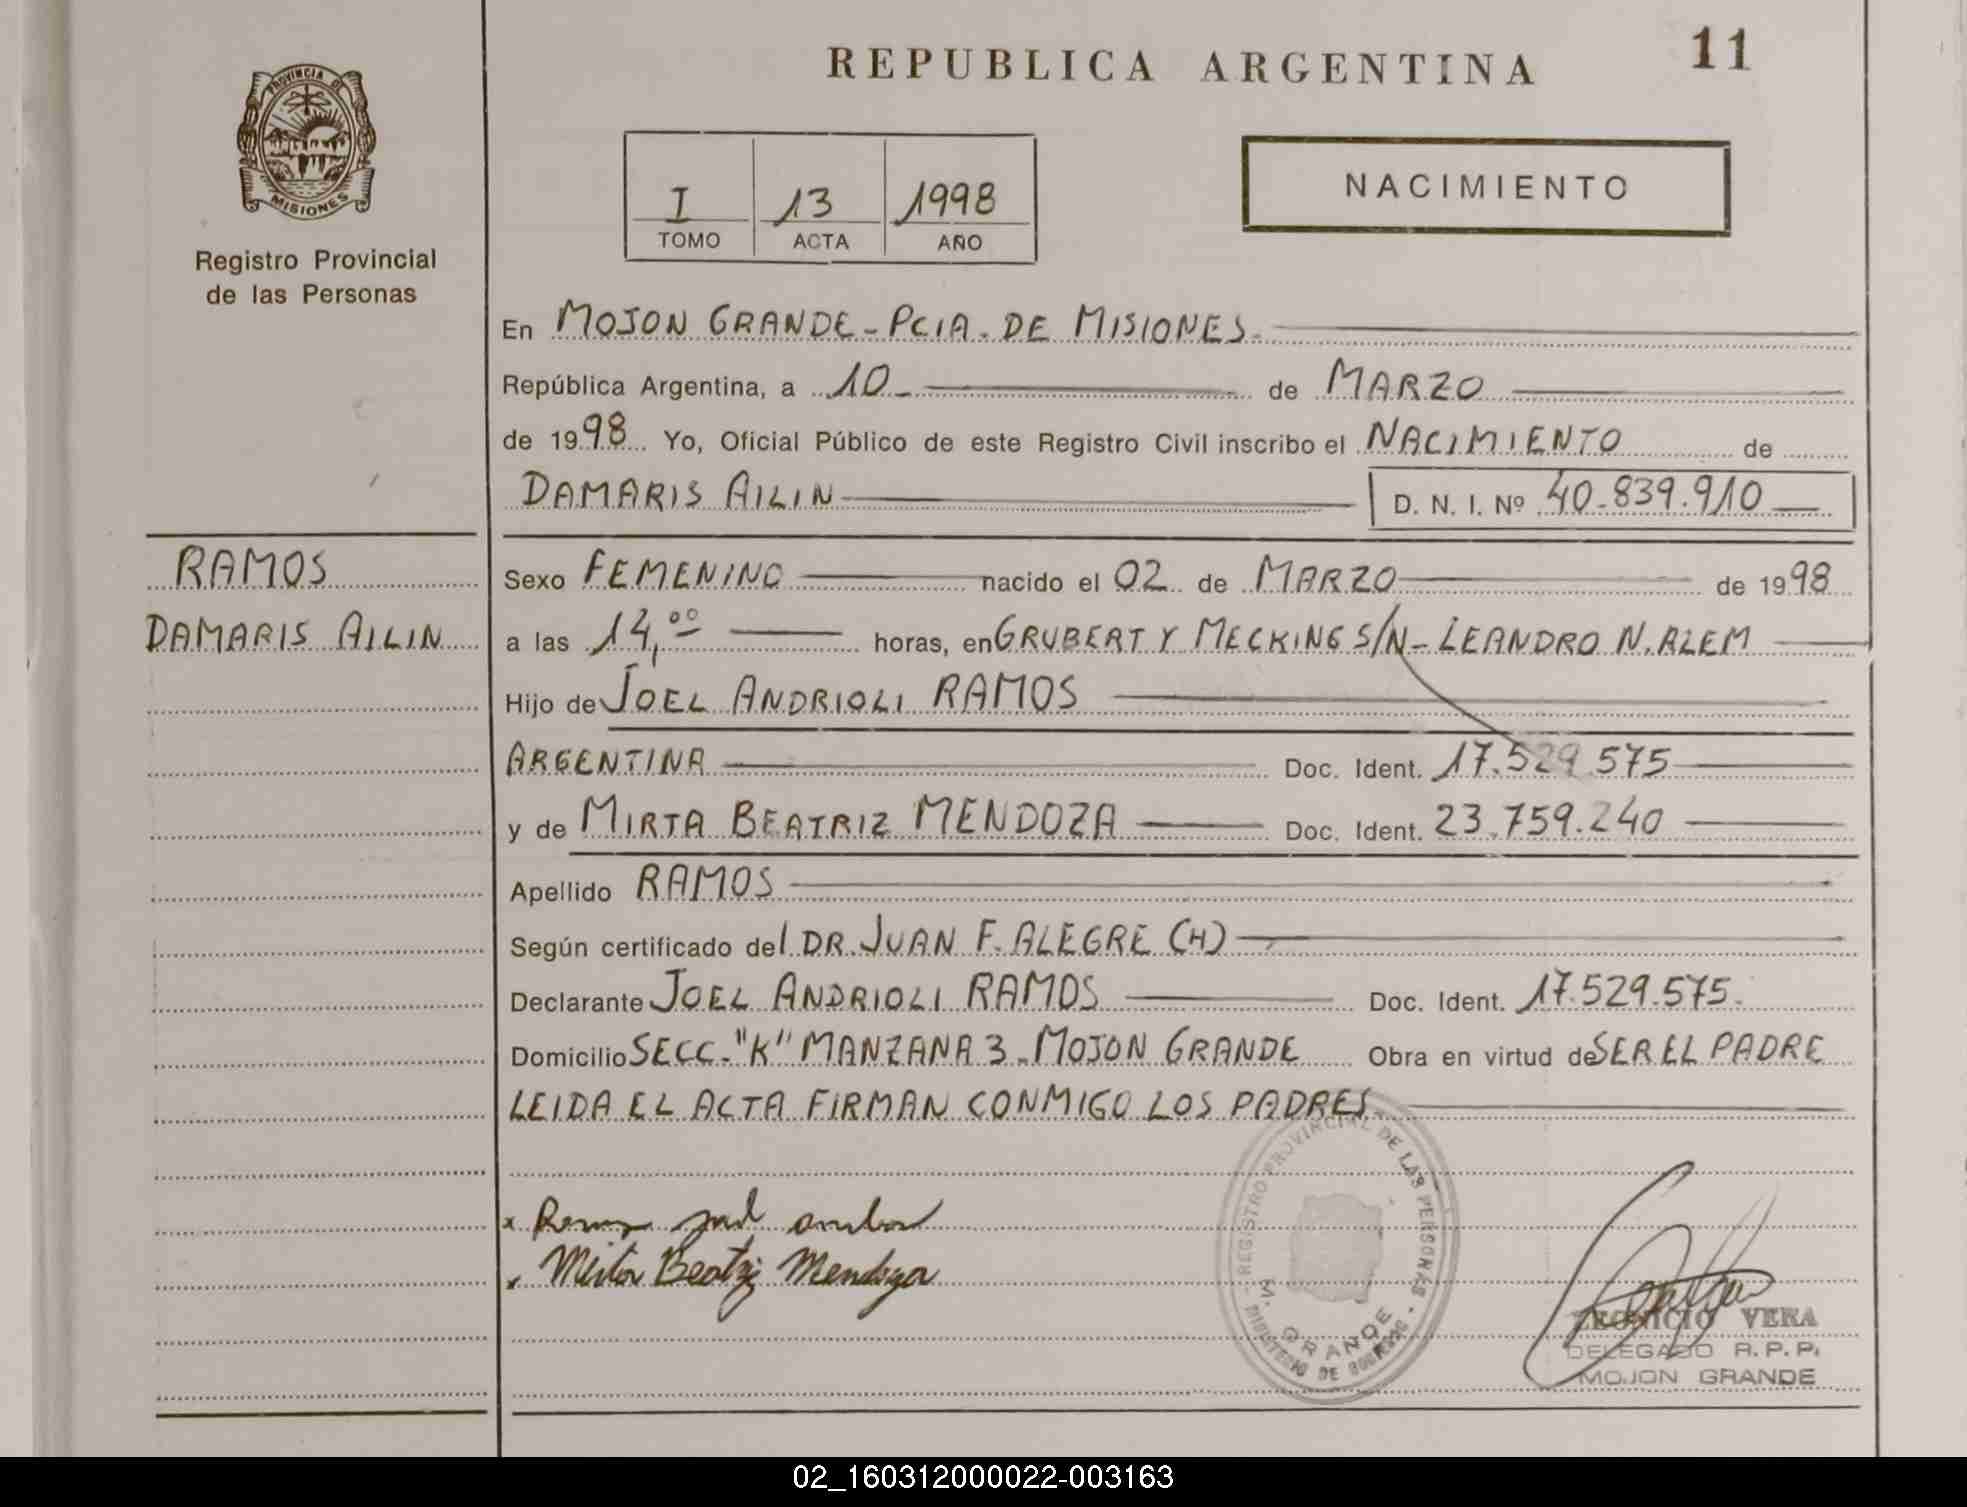 REPUBLICA ARGENTINA
11
PROVINCIA DE
MISIONES
Registro Provincial
de las Personas
I 13 1998
TOMO ACTA AÑO
NACIMIENTO
En MOJON GRANDE - PCIA. DE MISIONES.
República Argentina, a 10 de MARZO
de 1998 Yo, Oficial Público de este Registro Civil inscribo el NACIMIENTO de
DAMARIS AILIN D. N. I. Nº 40.839.910
RAMOS
DAMARIS AILIN
Sexo FEMENINO nacido el 02 de MARZO de 1998
a las 14,00 horas, en GRUBERT Y MECKING S/N - LEANDRO N. ALEM
Hijo de JOEL ANDRIOLI RAMOS
ARGENTINA Doc. Ident. 17.529.575
y de MIRTA BEATRIZ MENDOZA Doc. Ident. 23.759.240
Apellido RAMOS
Según certificado del DR. JUAN F. ALEGRE (H)
Declarante JOEL ANDRIOLI RAMOS Doc. Ident. 17.529.575.
Domicilio SECC. "K" MANZANA 3. MOJON GRANDE Obra en virtud de SER EL PADRE
LEIDA EL ACTA FIRMAN CONMIGO LOS PADRES.
x Ramos
x Mirta Beatriz Mendoza
REGISTRO PROVINCIAL DE LAS PERSONAS
M. GRANDE
MINISTERIO DE GOBIERNO
VERA
DELEGADO R.P.P.
MOJON GRANDE
02_160312000022-003163